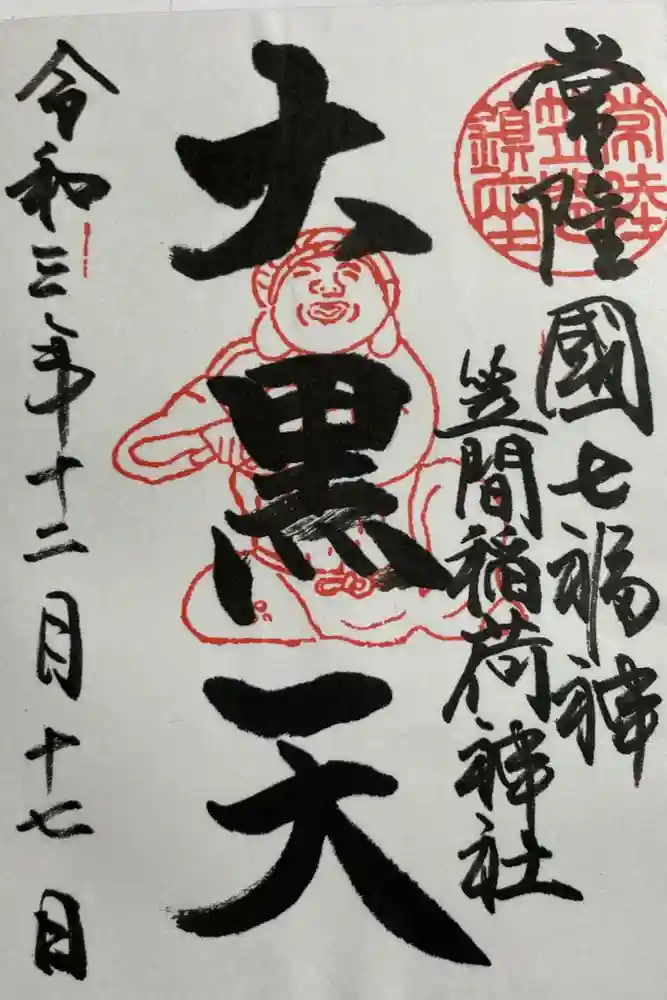 常陸國七福神
笠間稲荷神社
大黒天
令和三年十二月十七日
常陸
笠間
鎮座